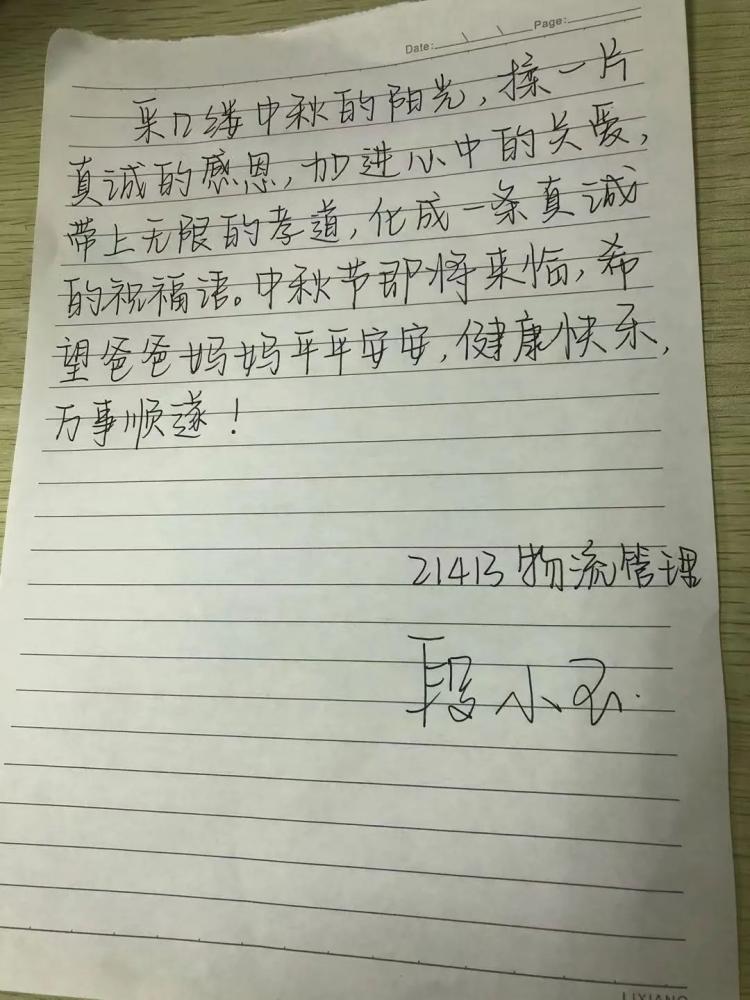 Date: \ \ Page:
采几缕中秋的阳光,揉一片
真诚的感恩,加进心中的关爱,
带上无限的孝道,化成一条真诚
的祝福语。中秋节即将来临,希
望爸爸妈妈平平安安,健康快乐,
万事顺遂!
21413物流管理
段小